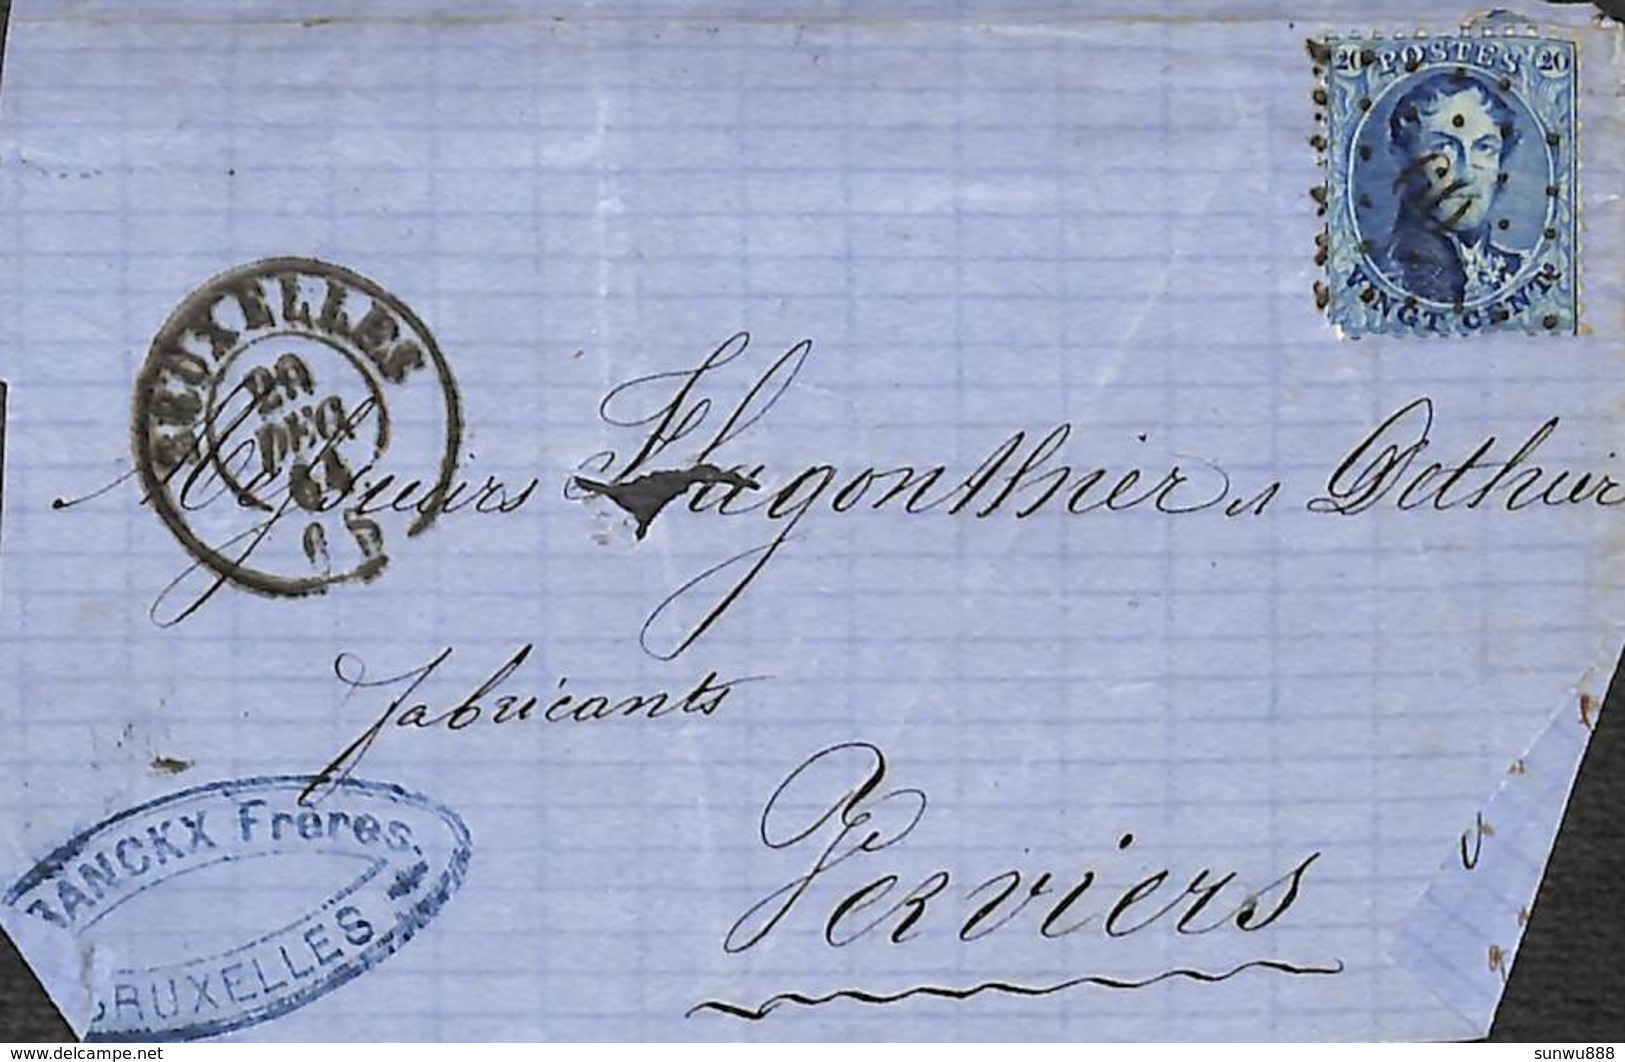 20 POSTES 20
VINGT CENTS
60
BRUXELLES
20
DEC
64
Messieurs Hagonthier & Dethier
fabricants
Verviers
RANCKX Frères.
BRUXELLES
www.delcampe.net
sunwu888